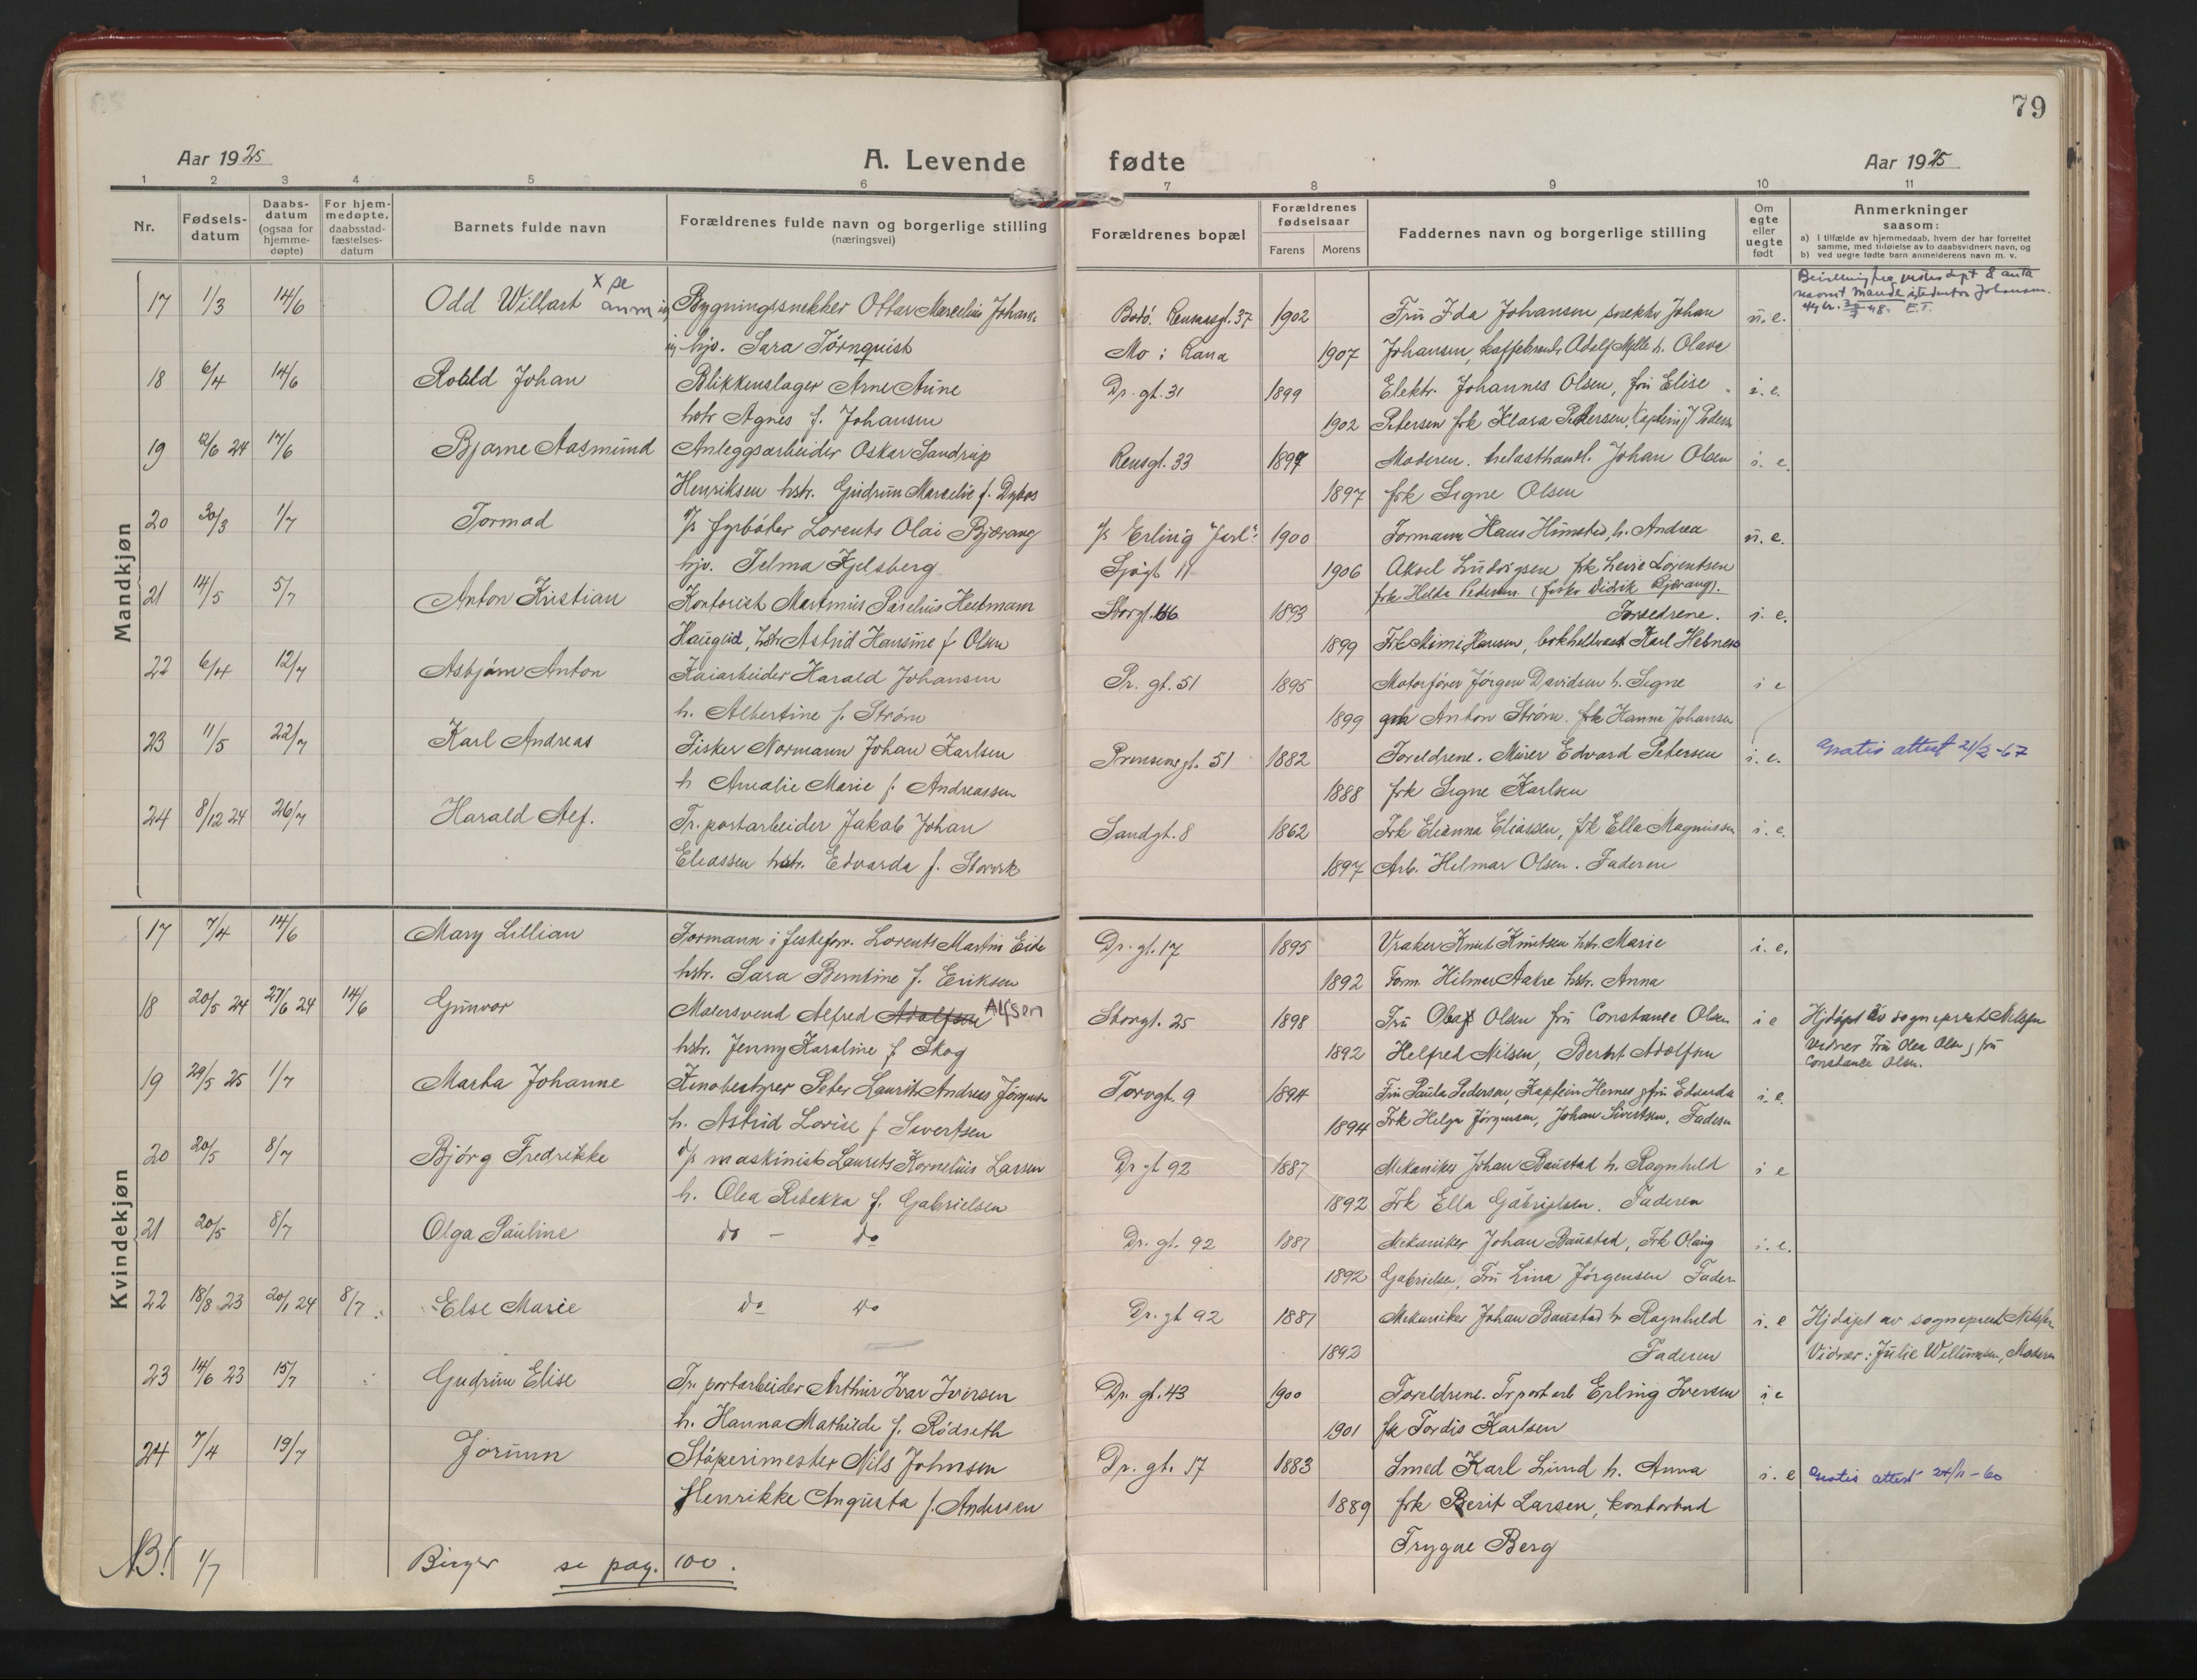 79
Aar 1925 A. Levende fødte Aar 1925
1 2 3 4 5 6 7 8 9 10 11
Nr. Fødsels-datum Daabs-datum (ogsaa for hjemme-døpte) For hjem-medøpte, daabsstad-fæstelses-datum Barnets fulde navn Forældrenes fulde navn og borgerlige stilling (næringsvei) Forældrenes bopæl Forældrenes fødselsaar Farens Morens Faddernes navn og borgerlige stilling Om egte eller uegte født Anmerkninger saasom:
a) i tilfælde av hjemmedaab, hvem der har forrettet samme, med tilføielse av to daabsvidners navn, og
b) ved uegte fødte barn anmelderens navn m. v.
Mandkjøn
17 1/3 14/6 Odd Willart x se anm Bygningssnekker Ottar Marcelius Johans. Bodö. Rensasgt. 37 1902 Fru Ida Johansen snekker Johan u. e.
ug. hjv. Sara Törnquist Mo i Rana 1907 Johansen, kaffebrender Adolf Mylle h. Olava
18 6/4 14/6 Roald Johan Blikkenslager Arne Aune Dr. gt. 31 1899 Elektr. Johannes Olsen, fru Elise i. e.
hstr Agnes f. Johansen 1902 Petersen frk Klara Pettersen, Kaptein J Peders
19 12/6 24 17/6 Bjarne Aasmund Anleggsarbeider Oskar Sandrup Rensgt. 33 1897 Moderen. trelasthandl. Johan Olsen i. e.
Henriksen hstr. Gudrun Marcelie f. Dybos 1897 frk Signe Olsen
20 30/3 1/7 Tormod d/s fyrböter Lorents Olai Bjærang d/s Erling "Jarl" 1900 Formann Hans Hunsted, h. Andrea u. e.
hjv. Selma Kjelsberg Sjögt 11 1906 Aksel Ludvigsen frk Levie Lorentsen
frk Hilda Pedersen (fisker Didrik Bjærang).
21 14/5 5/7 Anton Kristian Kontorist Martinus Parelius Heitmann Storgt. 66 1893 Foreldrene. i. e.
Hauglid, hstr Astrid Hansine f Olsen 1899 Frk Mimi Hansen, bokholder Karl Hebnes
22 6/4 12/7 Asbjörn Anton Kaiarbeider Harald Johansen Pr. gt. 51 1895 Motorförer Jörgen Davidsen h. Signe i e
h. Albertine f. Ström 1899 gmh Anton Ström. frk Hanna Johansen
23 11/5 22/7 Karl Andreas Fisker Normann Johan Karlsen Prinsensgt. 51 1882 Foreldrene. Murer Edvard Petersen i. e. Gratis attest 21/2-67
h Amalie Marie f. Andreassen 1888 frk Signe Karlsen
24 8/12 24 26/7 Harald Alf. Tr. portarbeider Jakob Johan Sandgt. 8 1862 Frk Elianna Eliassen, frk Ella Magnussen i. e.
Eliassen hstr. Edvarda f. Storvik 1897 Arb. Hilmar Olsen. Faderen
Kvindekjøn
17 7/4 14/6 Mary Lillian Formann i fiskeforr. Lorents Martin Eide Dr. gt. 17 1895 Vraker Knut Knutsen hstr. Marie i. e.
hstr. Sara Berntine f. Eriksen 1892 Form. Hilmar Aakre hstr. Anna
18 20/5 24 27/6 24 14/6 Gunvor Malersvend Alfred Adolfsen Alfsen Storgt. 25 1898 Fru Olea Olsen fru Constance Olsen i e Hjdöpt av sogneprest Nelsen
hstr. Jenny Karoline f Skog 1892 Helfred Nilsen, Bernt Adolfsen Vidner Fru Olea Olsen, fru Constance Olsen.
19 29/5 25 1/7 Marta Johanne Kinobestyrer Peter Laurits Andreas Jörgensen Torvgt. 9 1894 Fru Paula Pedersen, Kaptein Hernes fru Edvarda i. e.
h. Astrid Lovise f Sivertsen 1894 Frk Helga Jörgensen, Johan Sivertsen. Fadern
20 20/5 8/7 Björg Fredrikke d/s maskinist Laurits Kornelius Larsen Dr gt 92 1887 Mekaniker Johan Baustad h. Ragnhild i e
h. Olea Rebekka f. Gabrielsen 1892 Frk Ella Gabrielsen. Faderen
21 20/5 8/7 Olga Pauline do - do Dr. gt. 92 1887 Mekaniker Johan Baustad, Frk Olaug i. e.
1892 Gabrielsen, Fru Lina Jörgensen Fader
22 18/8 23 20/1 24 8/7 Else Marie do do Dr. gt 92 1887 Mekaniker Johan Baustad h Ragnhild i. e Hjdöpt av sogneprest Nelsen
1892 Faderen Vidner: Julie Willumsen, Moderen
23 14/6 23 15/7 Gudrun Elise Tr. portarbeider Arthur Ivar Iversen Dr. gt. 43 1900 Foreldrene. Tr portarb Erling Iversen i e
h. Hanna Mathilde f. Rödseth 1901 frk Tordis Karlsen
24 7/4 19/7 Jorunn Stöperimester Nils Johnsen Dr. gt. 17 1883 Smed Karl Lund h. Anna i. e Gratis attest 24/11-60
Henrikke Augusta f. Andersen 1889 frk Berit Larsen, kontorbud
Trygve Berg
NB! 1/7 Birger se pag. 100.